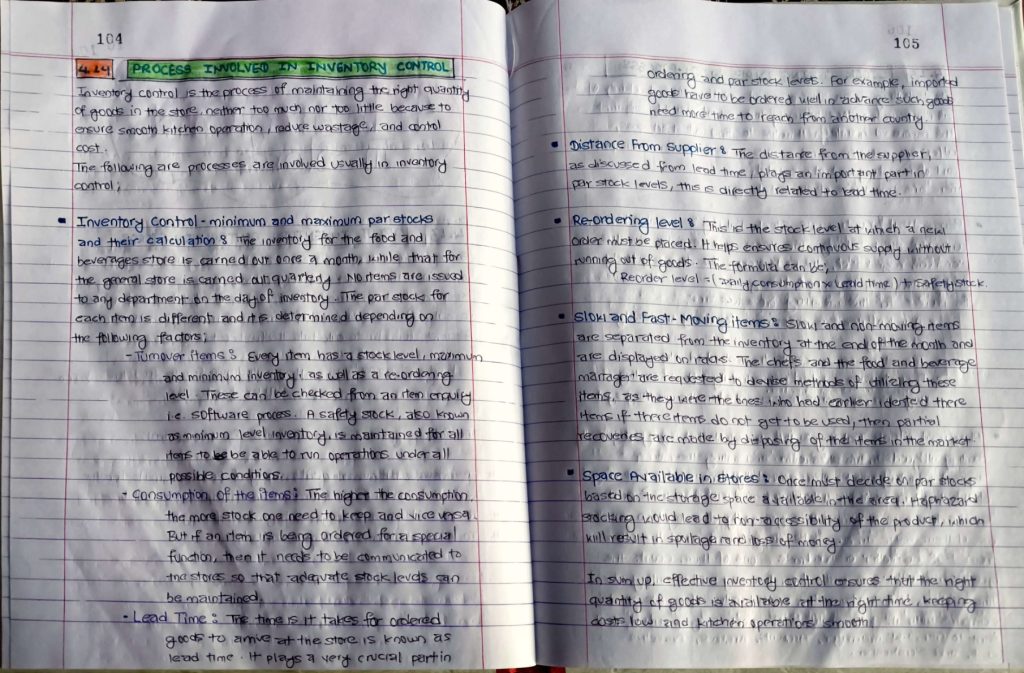 104
4.24 PROCESS INVOLVED IN INVENTORY CONTROL
Inventory control is the process of maintaining the right quantity
of goods in the store, neither too much nor too little because to
ensure smooth kitchen operation, reduce wastage, and control
cost.
The following are processes are involved usually in inventory
control;
• Inventory Control - minimum and maximum par stocks
and their calculation : The inventory for the food and
beverages store is carried out once a month, while that for
the general store is carried out quarterly. No items are issued
to any department on the day of inventory. The par stocks for
each item is different and it is determined depending on
the following factors;
- Turnover items : Every item has a stock level, maximum
and minimum inventory, as well as a re-ordering
level. These can be checked from an item enquiry
i.e. software process. A safety stock, also known
as minimum level inventory, is maintained for all
items to be able to run operations under all
possible conditions.
- Consumption of the items : The higher the consumption
the more stock one need to keep and vice versa.
But if an item is being ordered for a special
function, then it needs to be communicated to
the stores so that adequate stock levels can
be maintained.
• Lead Time : The time is it takes for ordered
goods to arrive at the store is known as
lead time. It plays a very crucial part in
105
ordering and par stock levels. For example, imported
goods have to be ordered well in advance such goods
need more time to reach from another country.
• Distance From Supplier : The distance from the supplier,
as discussed from lead time, plays an important part in
par stock levels, this is directly related to lead time.
• Re-ordering level : This is the stock level at which a new
order must be placed. It helps ensures continuous supply without
running out of goods. The formula can be,
Reorder level = (Daily consumption x Lead time) + Safety stock.
• Slow and Fast-Moving items : Slow and non-moving items
are separated from the inventory at the end of the month and
are displayed on racks. The chefs and the food and beverage
manager are requested to devise methods of utilizing these
items, as they were the ones who had earlier idented there
items if there items do not get to be used, then partial
recoveries are made by disposing of the items in the market.
• Space Available in Stores : Once must decide on par stocks
based on the storage space available in the area. Haphazard
stocking would lead to non-accessibility of the product, which
will result in spoilage and loss of money.
In sum up, effective inventory control ensures that the right
quantity of goods is available at the right time, keeping
costs low and kitchen operations smooth